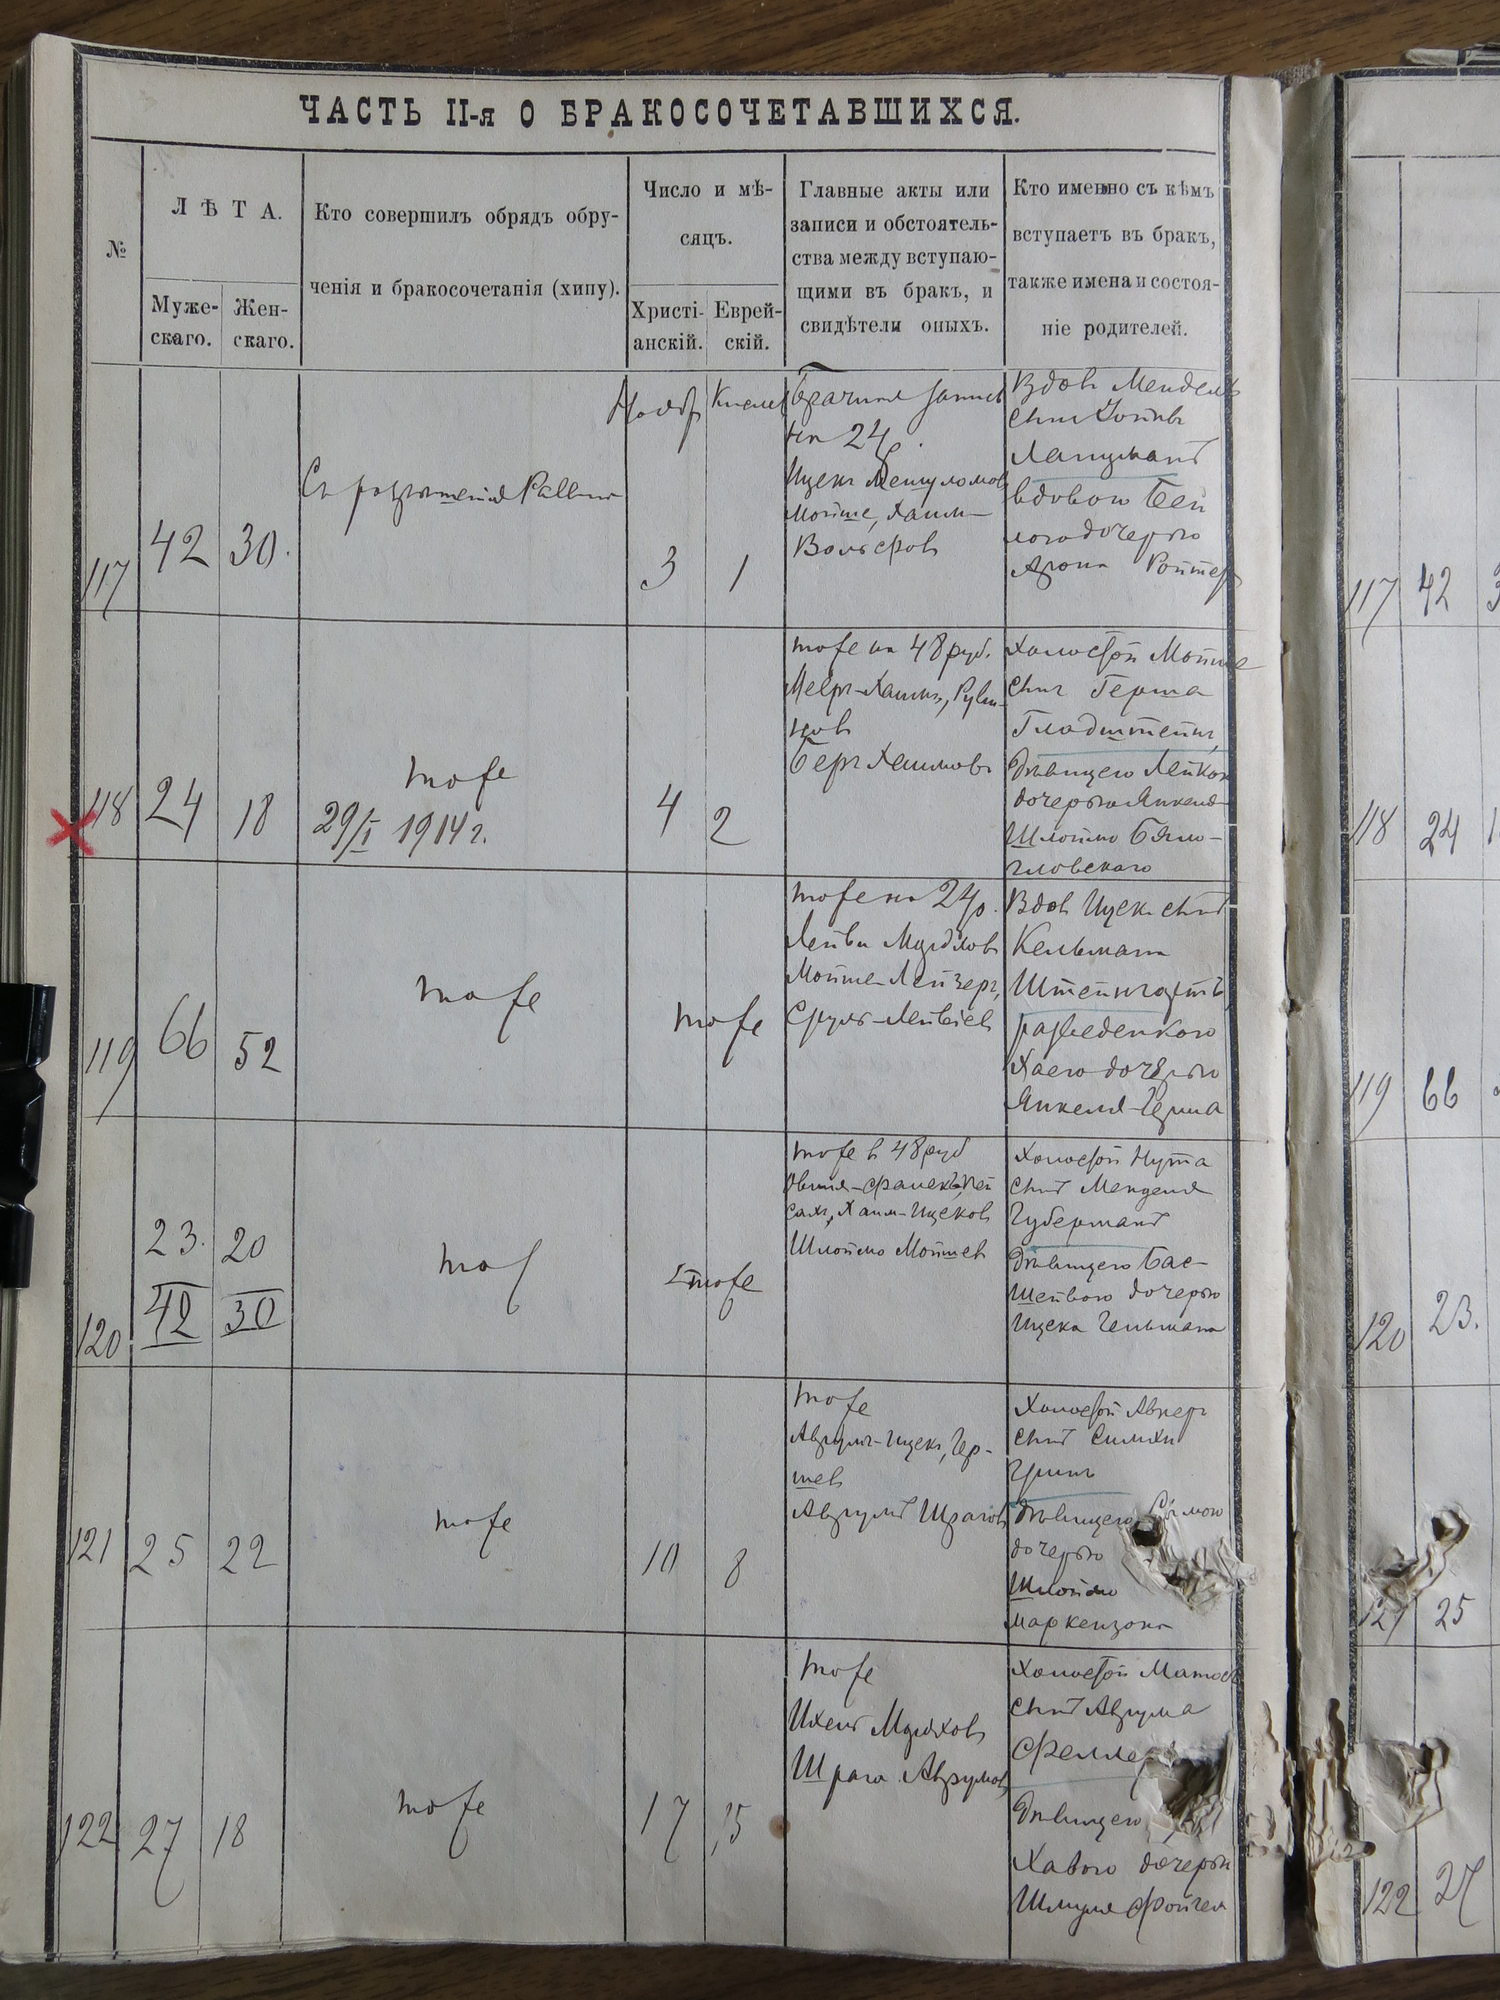 ЧАСТЬ II-я О БРАКОСОЧЕТАВШИХСЯ.
№
ЛѢТА.
Муже-
скаго.
Жен-
скаго.
Кто совершилъ обрядъ обру-
ченія и бракосочетанія (хипу).
Число и мѣ-
сяцъ.
Христі-
анскій.
Еврей-
скій.
Главные акты или
записи и обстоятель-
ства между вступаю-
щими въ бракъ, и
свидѣтели оныхъ.
Кто именно съ кѣмъ
вступаетъ въ бракъ,
также имена и состоя-
ніе родителей.
117
42
30.
Ноябр
3
1
Брачная запись
на 24
Мойше, Хаим-
Вольфовъ
Вдовъ Мендель
сынъ
вдовою
дочерью
Арона Ройтер
118
24
18
тоже
29/I 1914 г.
4
2
тоже на 48 руб.
Меер-Хаимъ,
Беръ Хаимовъ
Холостой Мойше
сынъ Герша
Гладштейнъ,
дѣвицею Лейкою
дочерью Янкеля-
Шлоймо Бяло-
гловскаго
119
66
52
тоже
тоже
тоже на 24р.
Мойше-Лейзеръ,
Сруль-Лейбіевъ
Вдовъ Ицекъ сынъ
Кельмана
Штейнгартъ,
разведенною
Хаею дочерью
Янкеля-Герша
120
23.
42
20
30
тоже
тоже
тоже в 48 руб
Хаим-Ицековъ
Шлоймо Мойшевъ
Холостой Нута
сынъ Менделя
Губерманъ
дѣвицею Бас-
Шейвою дочерью
Ицека Гельмана
121
25
22
тоже
10
8
тоже
Аврумъ-Ицекъ, Гер-
шев
Аврумъ Шраговъ
Холостой Авнеръ
сынъ Симхи
Гринъ
дѣвицею
дочерью
Шлоймо
Маркензона
122
27
18
тоже
17
15
тоже
Шрага Аврумовъ
Холостой Матось
сынъ Аврума
Феллер
дѣвицею
Хавою дочерью
Шмуля Фойгеля
117
42
118
24
119
66
120
23.
121
25
122
27